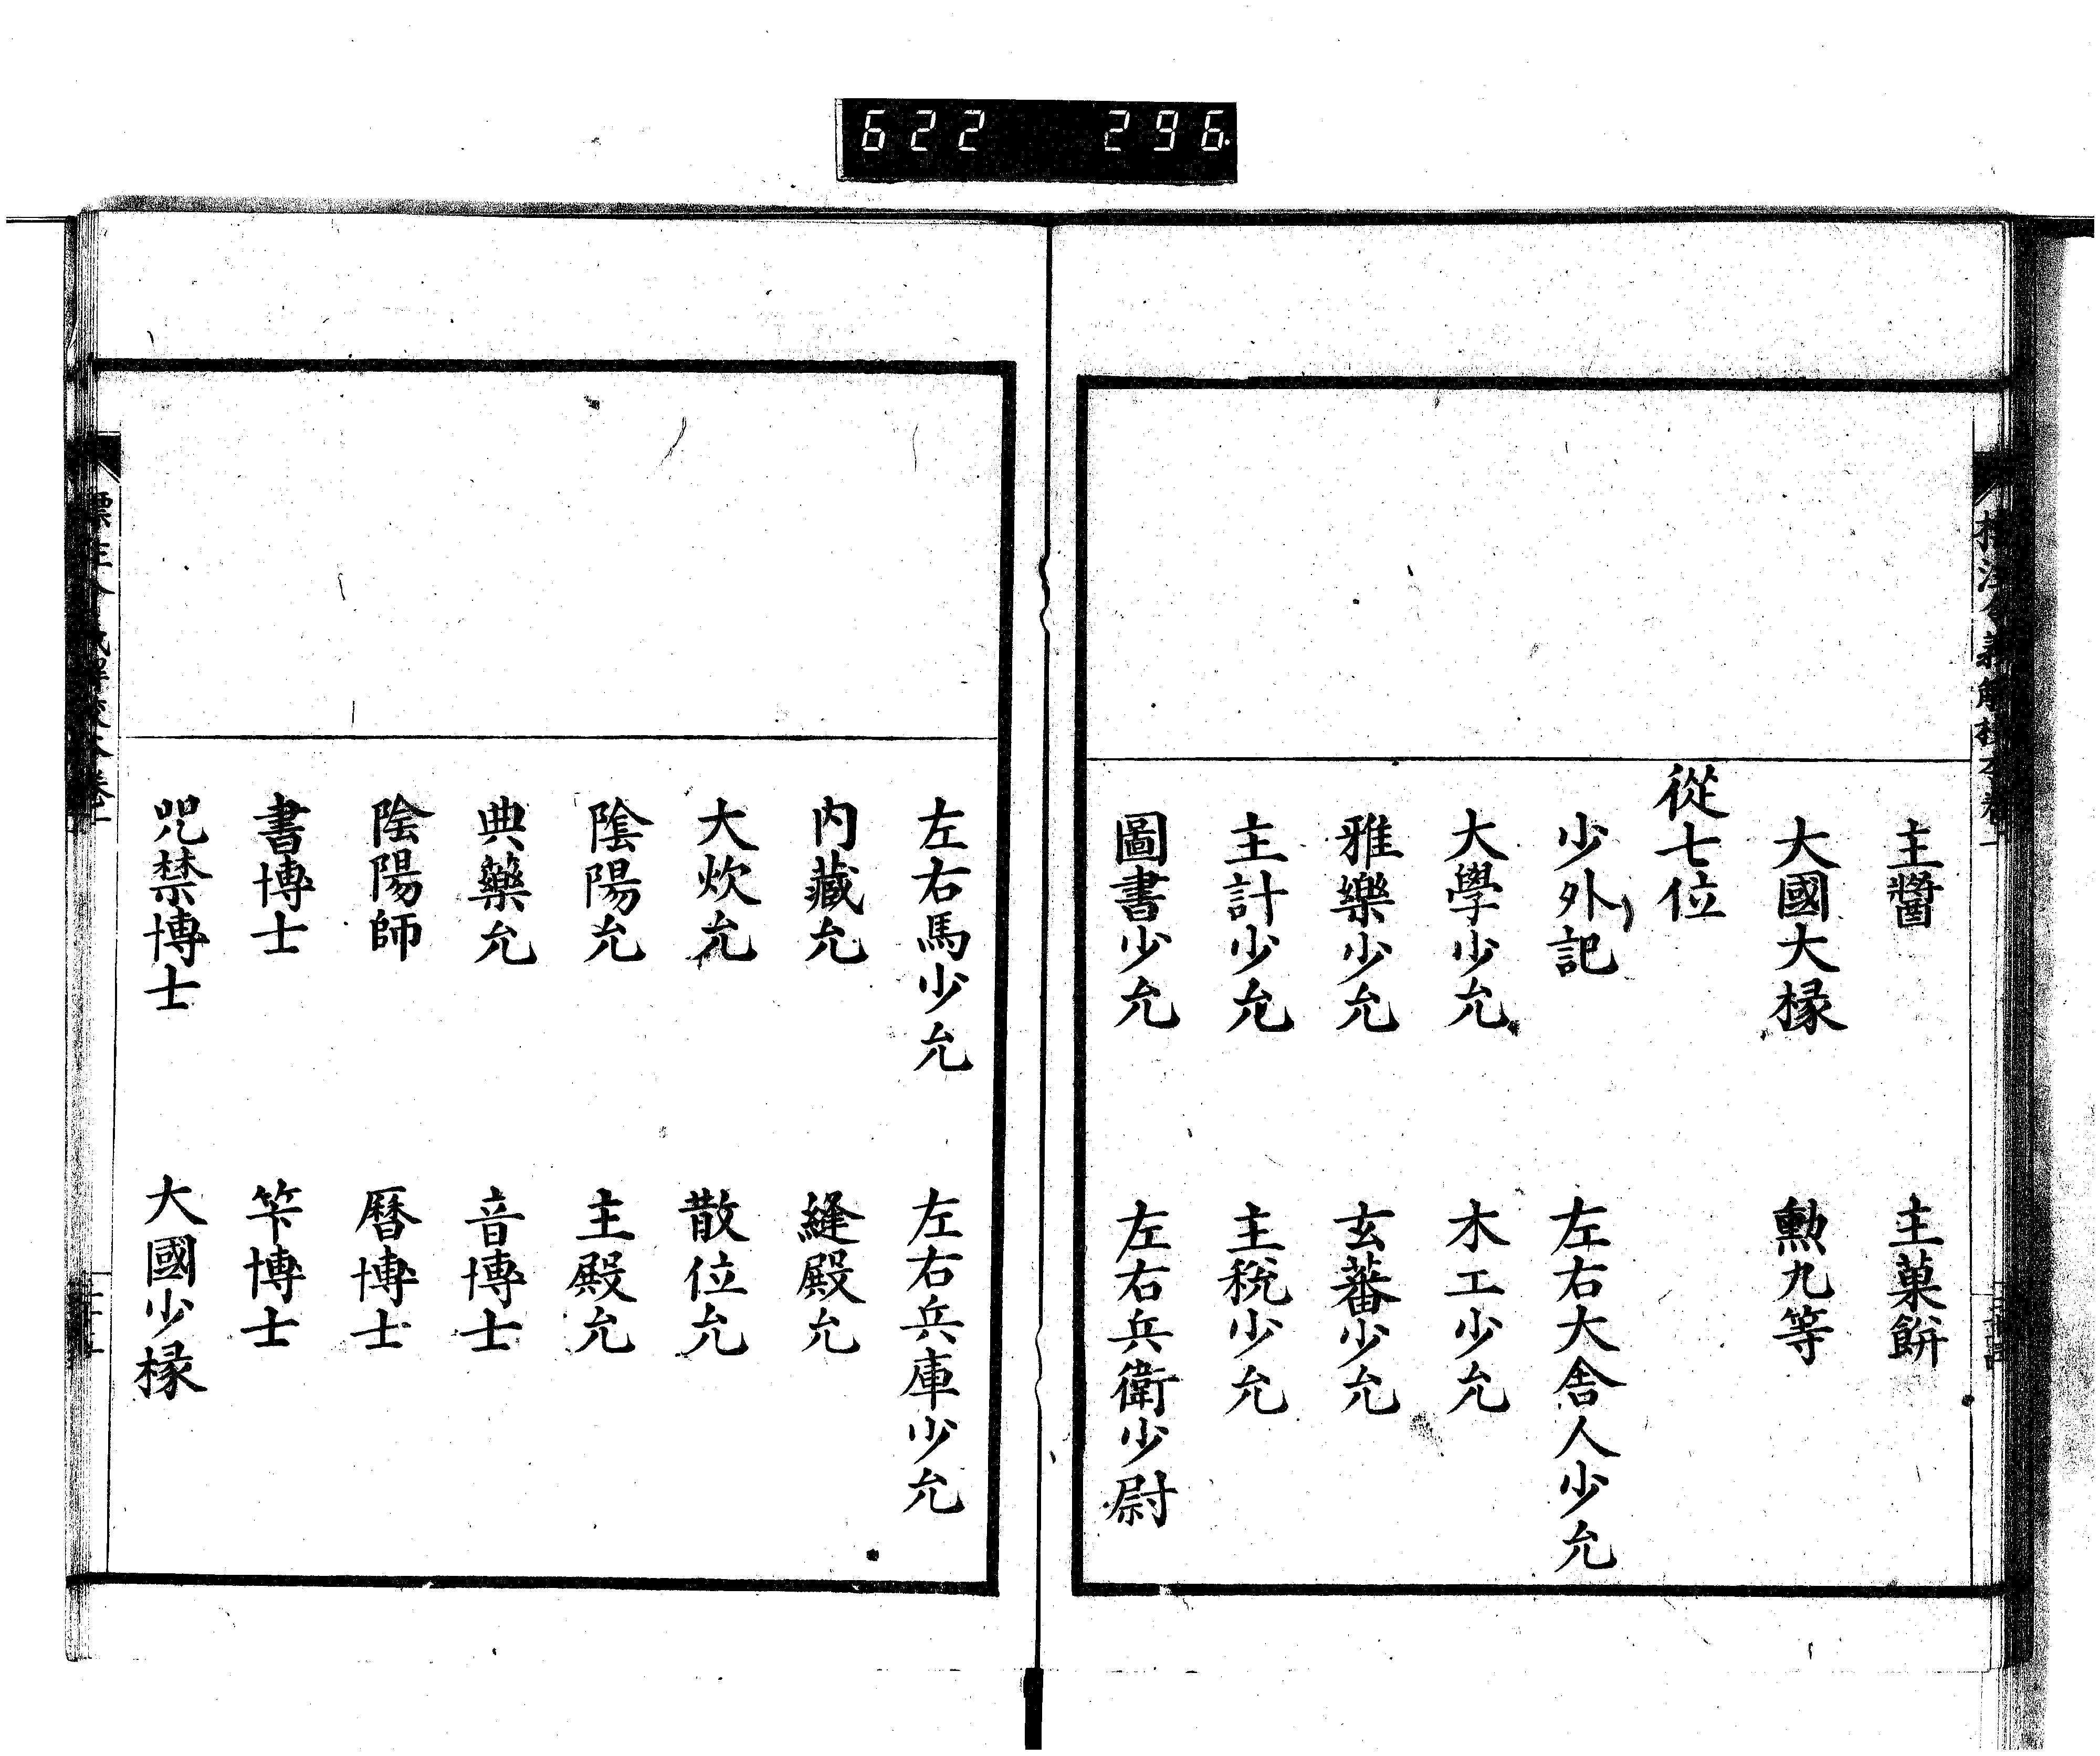 622 296
主醬 主菓餅
大國大掾 勲九等
從七位
少外記 左右大舍人少允
大學少允 木工少允
雅樂少允 玄蕃少允
主計少允 主税少允
圖書少允 左右兵衛少尉
左右馬少允 左右兵庫少允
内藏允 縫殿允
大炊允 散位允
陰陽允 主殿允
典藥允 音博士
陰陽師 暦博士
書博士 笇博士
咒禁博士 大國少掾